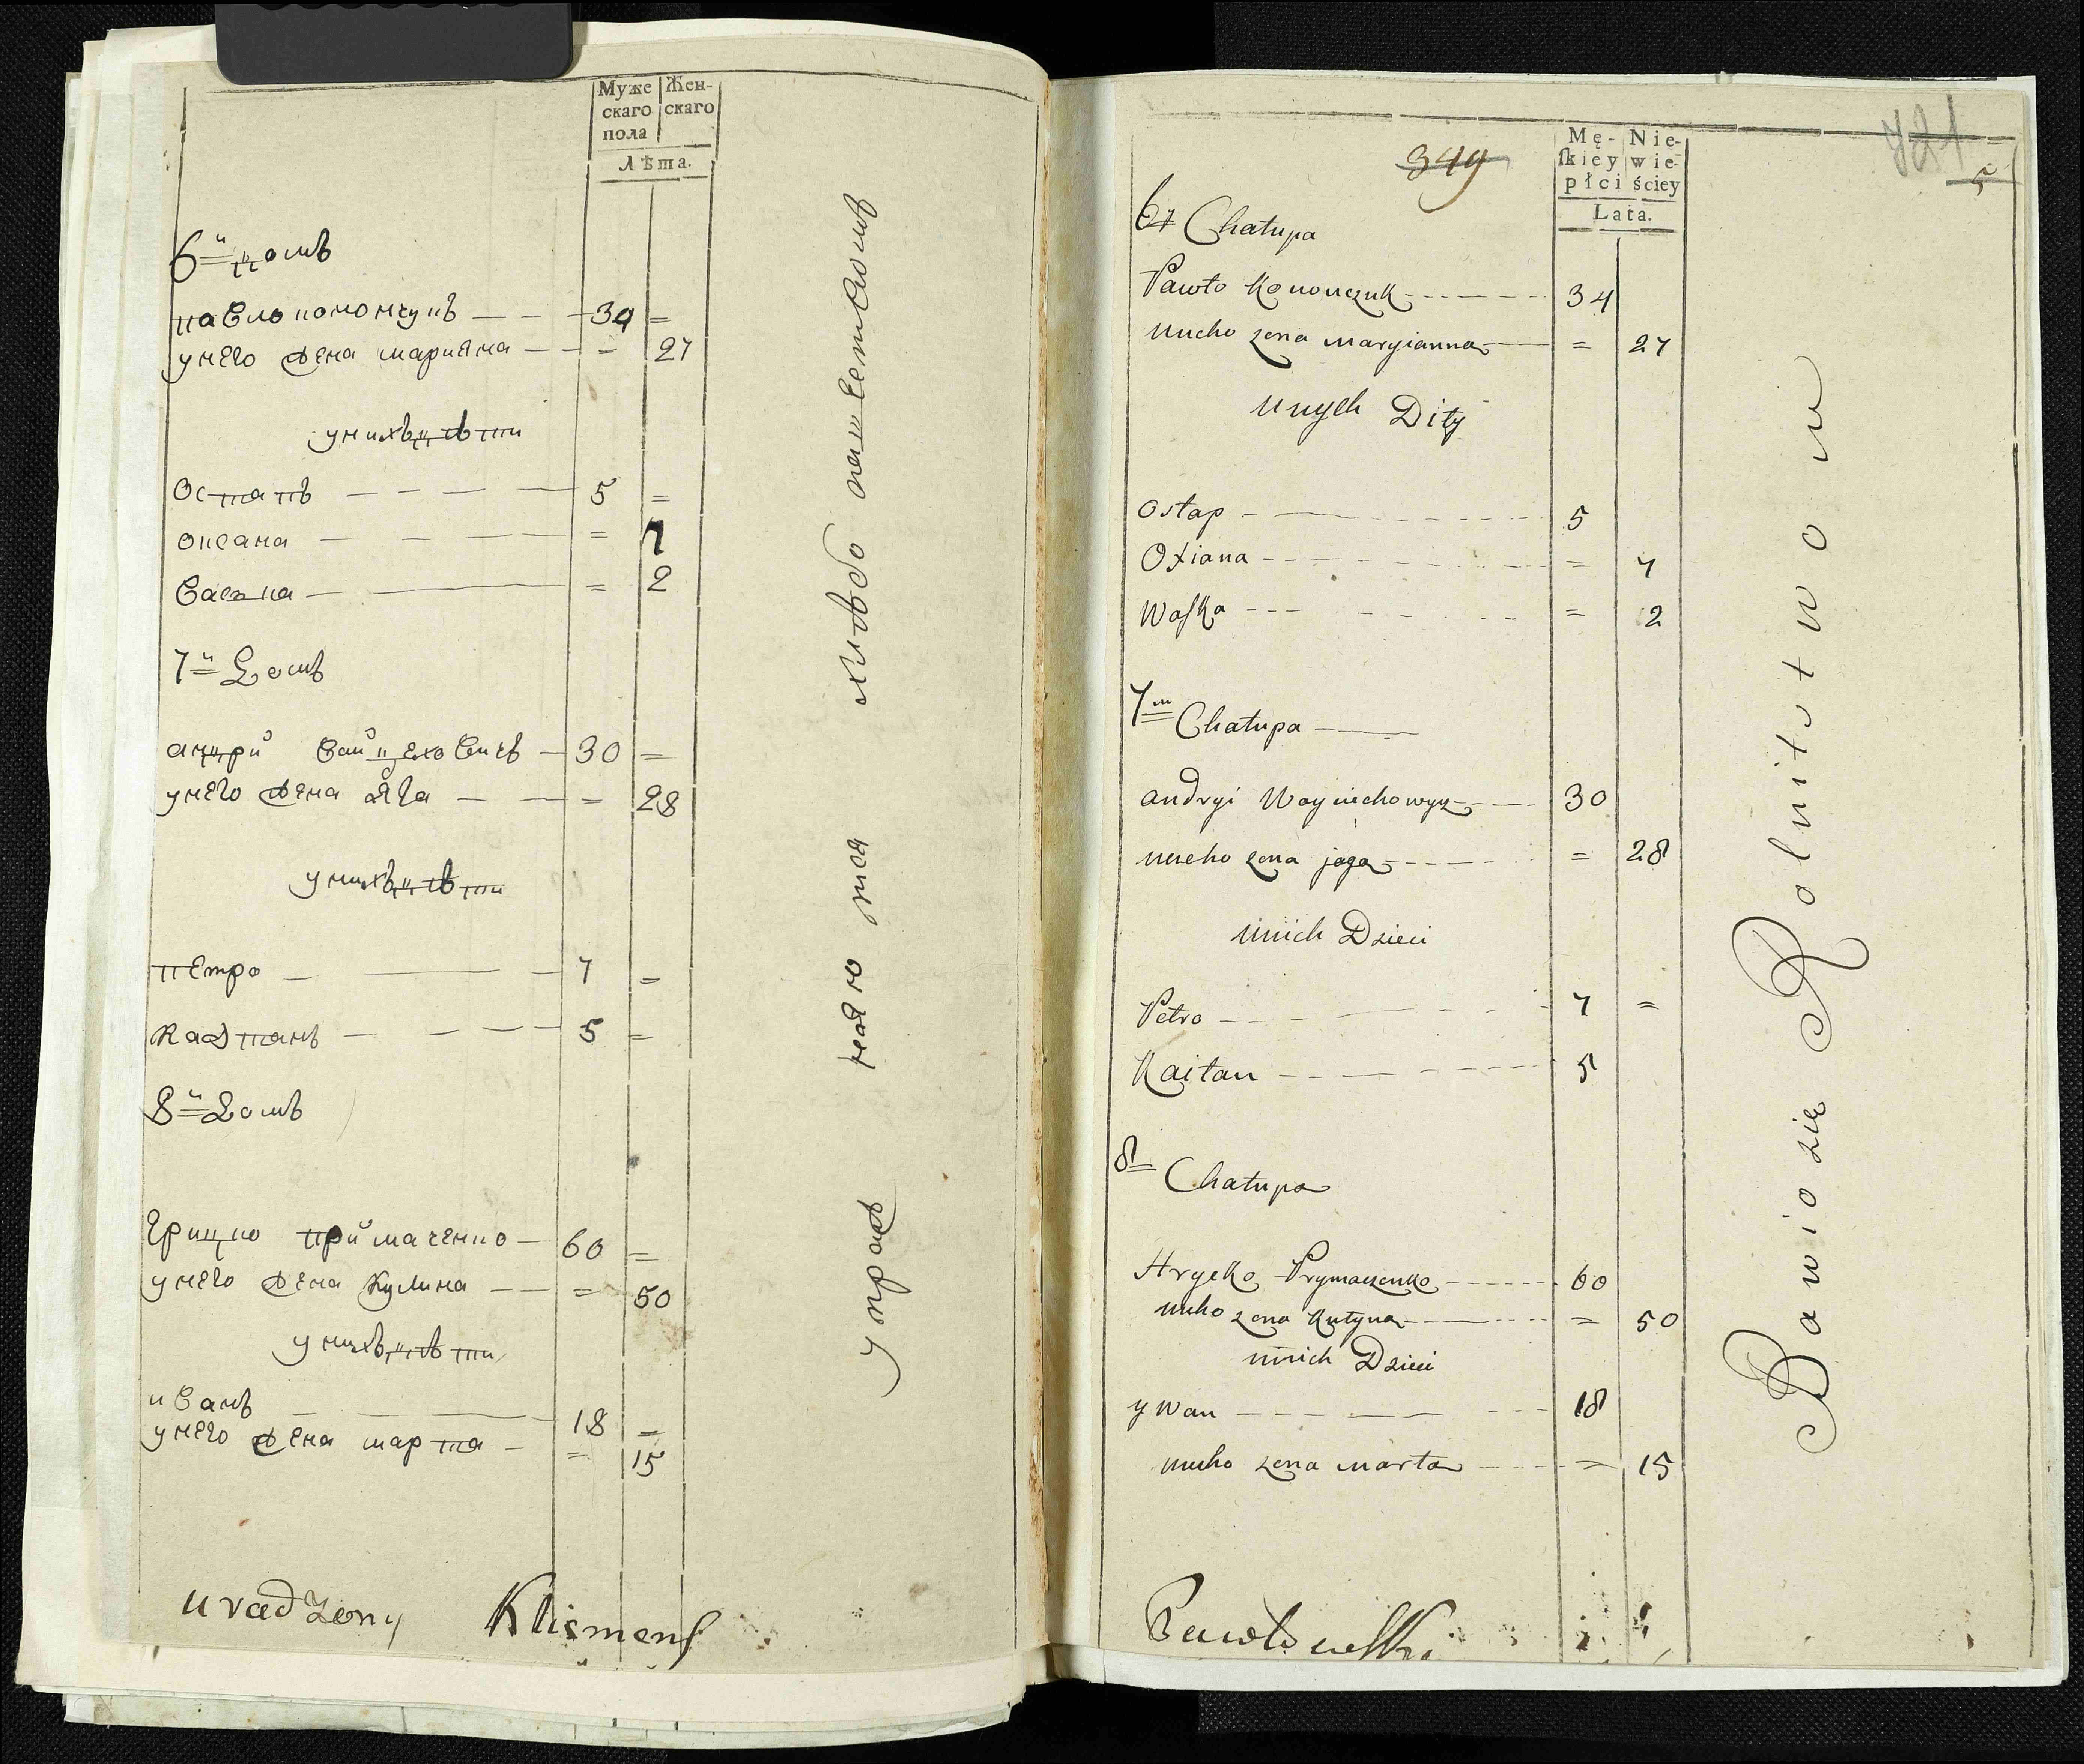 Муже Жен-
скаго скаго
пола
Лѣта.
6й домъ
павло кономчукъ — — — 34 =
унего жена марияна — — = 27
унихъ дѣти
Остапъ — — — — 5 =
оксана — — — — = 7
Васька — — = 2
7й Домъ
андрй Вайцеховичъ — 30 =
унего жена яга — — = 28
унихъ дѣти
пЕтро — — — 7 =
Кайтанъ — — — 5 =
8й Домъ
грицко прймаченко — 60 =
унего жена Кулина — — = 50
унихъ дѣти
иванъ — — 18 =
унего жена марта — = 15
упраж няю тся хлѣбо пашеством
uradzony Klismens
349
721
5
Mę- Nie-
ſkiey wie-
płci ściey
Lata.
6ta Chatupa
Pawło Kononczuk - - - - 34
uneho zena maryianna - = 27
unych Dity
Ostap - - - - 5
Oxiana - - - - = 7
Waſka - - - - = 2
7m Chatupa - - -
andryi Woyciechowycz - - - 30
uneho zena jaga - - - - = 28
unich Dzieci
Petro - - - - 7 =
Kaitan - - - - 5
8a Chatupa
Hrycko Prymaczenko - - - - 60
uneho zena Kulyna - - - - = 50
unich Dzieci
ywan - - - - 18
uneho zena marta - - - = 15
Bawio się Rolnitstwom